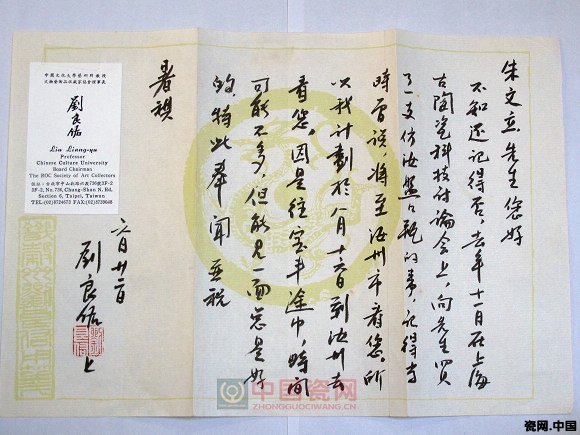 朱文立先生您好
不知还记得否，去年十一月在上海
古陶瓷科技讨论会上，向先生买
了一支仿汝盤口瓶的事，记得当
時曾说，将至汝州市看您。所
以我计劃於八月十六日到汝州去
看您。因是往宝丰途中，時间
可能不多，但能见一面总是好
的，特此奉闻 並祝
暑祺
六月廿二日
劉良佑 上
中國文化大學藝術所教授
文物藝術品收藏家協會理事長
劉良佑
Liu Liang-yu
Professor
Chinese Culture University
Board Chairman
The ROC Society of Art Collectors
3F-2, No.736, Chung-Shan N. Rd.
Section 6, Taipei, Taiwan
中国瓷网
ZHONGGUOCIWANG.CN
瓷网.中国